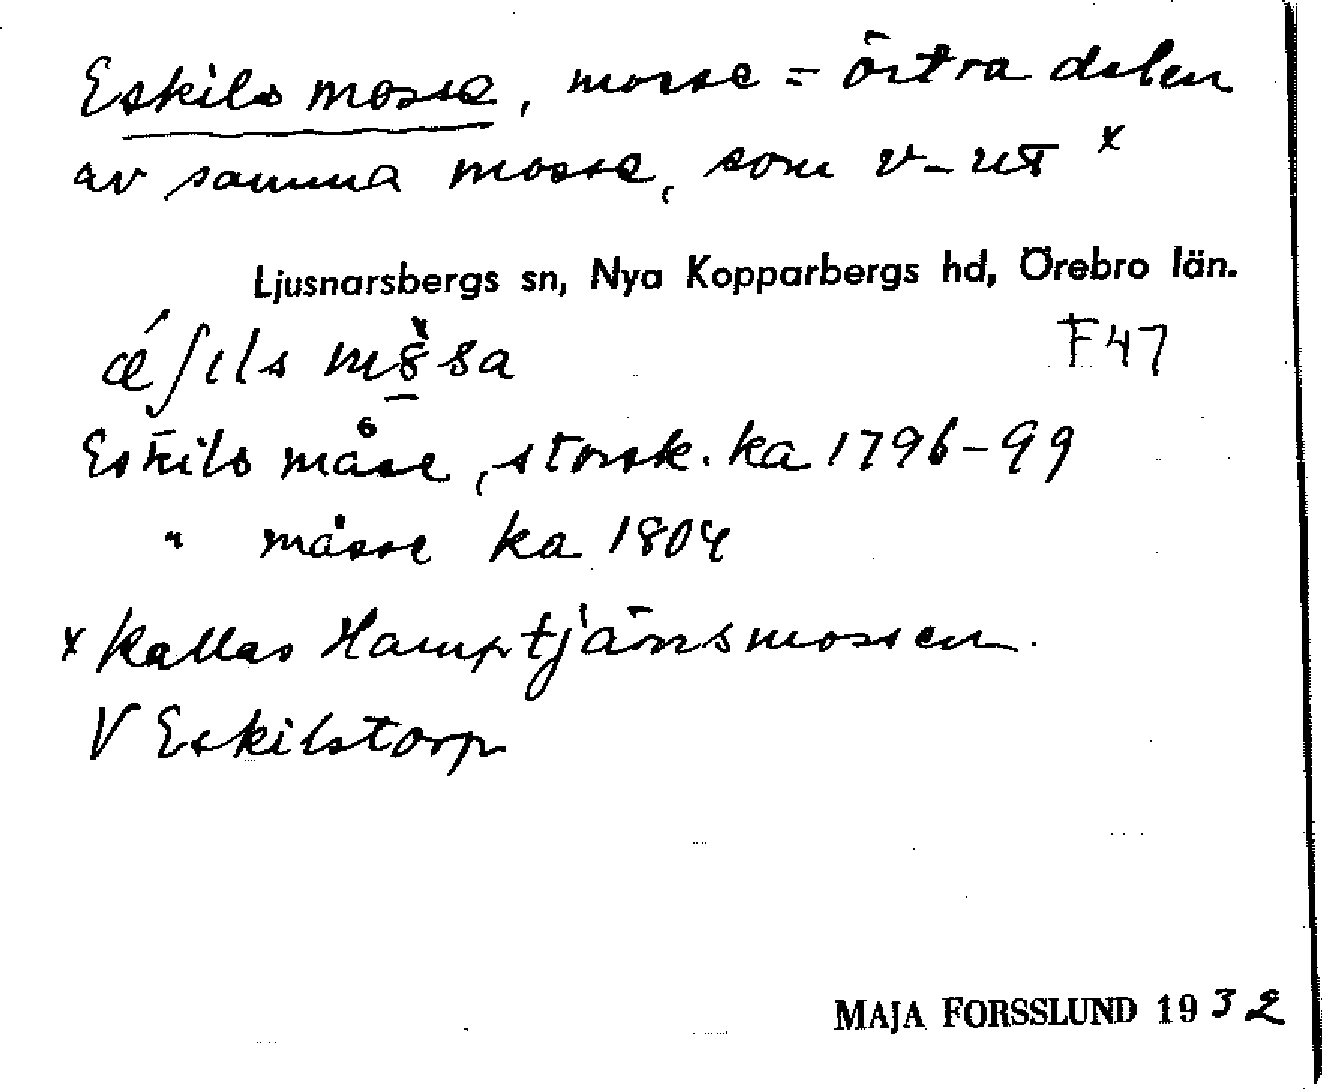 Eskils mosse, mosse = östra delen
av samma mosse, som v-ut x
Ljusnarsbergs sn, Nya Kopparbergs hd, Örebro län.
F47
Eskils måse, storsk. ka 1796-99
" måsse ka 1804
x kallas Hamptjärnsmossen.
V Eskilstorp
MAJA FORSSLUND 1932